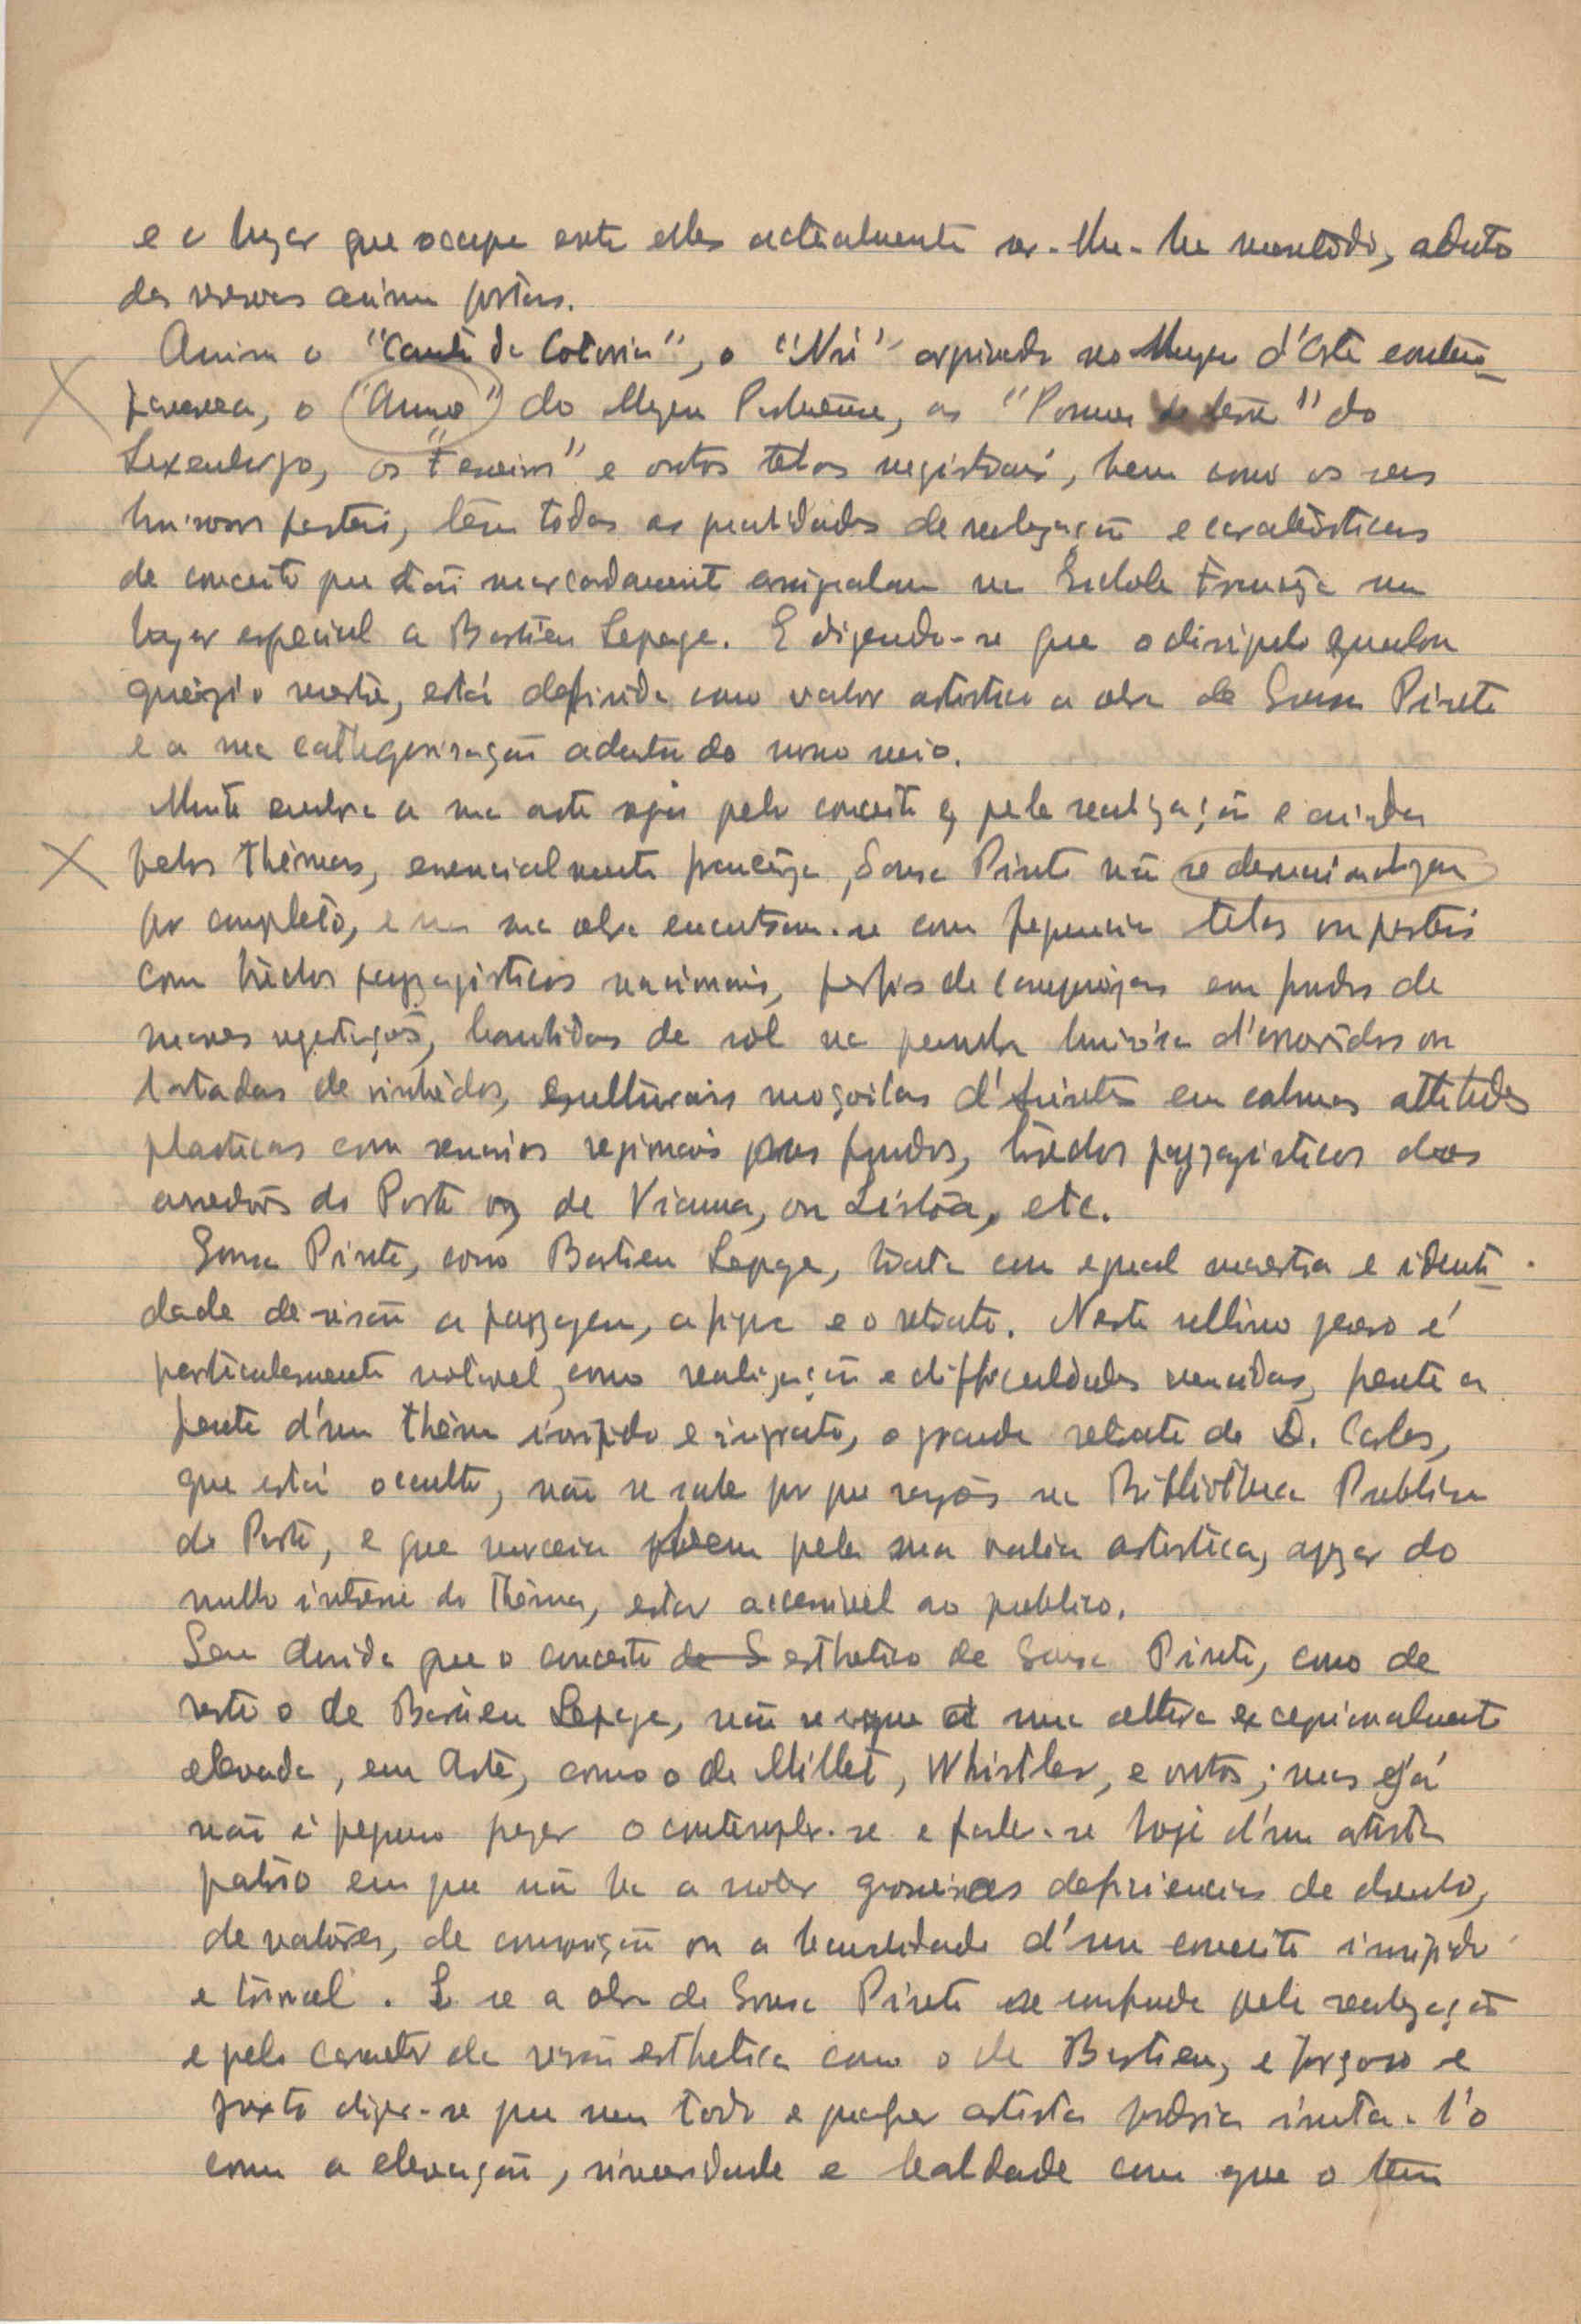 e o lugar que occupa entre elles actualmente ser-lhe-ha mantido, adentro
das reservas acima postas.
Assim o "Canto da Cotovia", o "Nú" no Muzeu d'Arte contem-
poranea, o do Muzeu Portuense, as "Pommes de terre" do
Luxemburgo, os e outras telas magistraes, bem como os seus
luminosos pasteis, têm todas as qualidades de realização e caracteristicas
de conceito que tão marcadamente assignalam na Eschola Franceza um
logar especial a Bastien Lepage. E dizendo-se que o discipulo egualou
quasi o mestre, está definida como valor artistico a obra de Souza Pinto
e a sua cathegorisação adentro do nosso meio.
Muito embora a sua arte seja pelo conceito e, pela realização e ainda
pelos thêmas, essencialmente franceza, Souza Pinto não se desnacionalizou
por completo, e na sua obra encontram-se com frequencia telas ou pasteis
com trechos payzagisticos nacionais, perfis de camponezas em fundos de
suaves vegetações, batidas de sol na luminosa d'arvoredos ou
latadas de vinhêdos, esculturais moçoilas d'Aguinte em calmas attitudes
plasticas com scenarios regionais por fundos, trechos payzagisticos dos
arredores do Porto ou de Vianna, ou Lisbôa, etc.
Souza Pinto, como Bastien Lepage, trata com egual mestria e identi-
dade de visão a payzagem, a figura e o retrato. Neste ultimo genero é
particularmente notavel, como realização e difficuldades vencidas, frente a
frente d'um thêma insipido e ingrato, o grande retrato de D. Carlos,
que está occulto, não se sabe por que razões na Bibliotheca Publica
do Porto, e que merecia porem pela sua valia artistica, apezar do
nullo interesse do thêma, estar accessivel ao publico.
Sem duvida que o conceito de S esthetico de Souza Pinto, como de
resto o de Bastien Lepage, não se ergue a uma altura excepcionalmente
elevada, em Arte, como o de Millet, Whistler, e outros; mas já
não é pequeno prazer o contemplar-se e fallar-se hoje d'um artista
patrio em que não ha a notar grosseiras deficiencias de desenho,
de valôres, de composição ou a banalidade d'um conceito insipido
e trivial. E se a obra de Souza Pinto se confunde pela realização
e pelo caracter da visão esthetica com o de Bastien, é forçoso e
justo dizer-se que nem todo e qualquer artista poderia imital-o
com a elevação, sinceridade e lealdade com que o tem